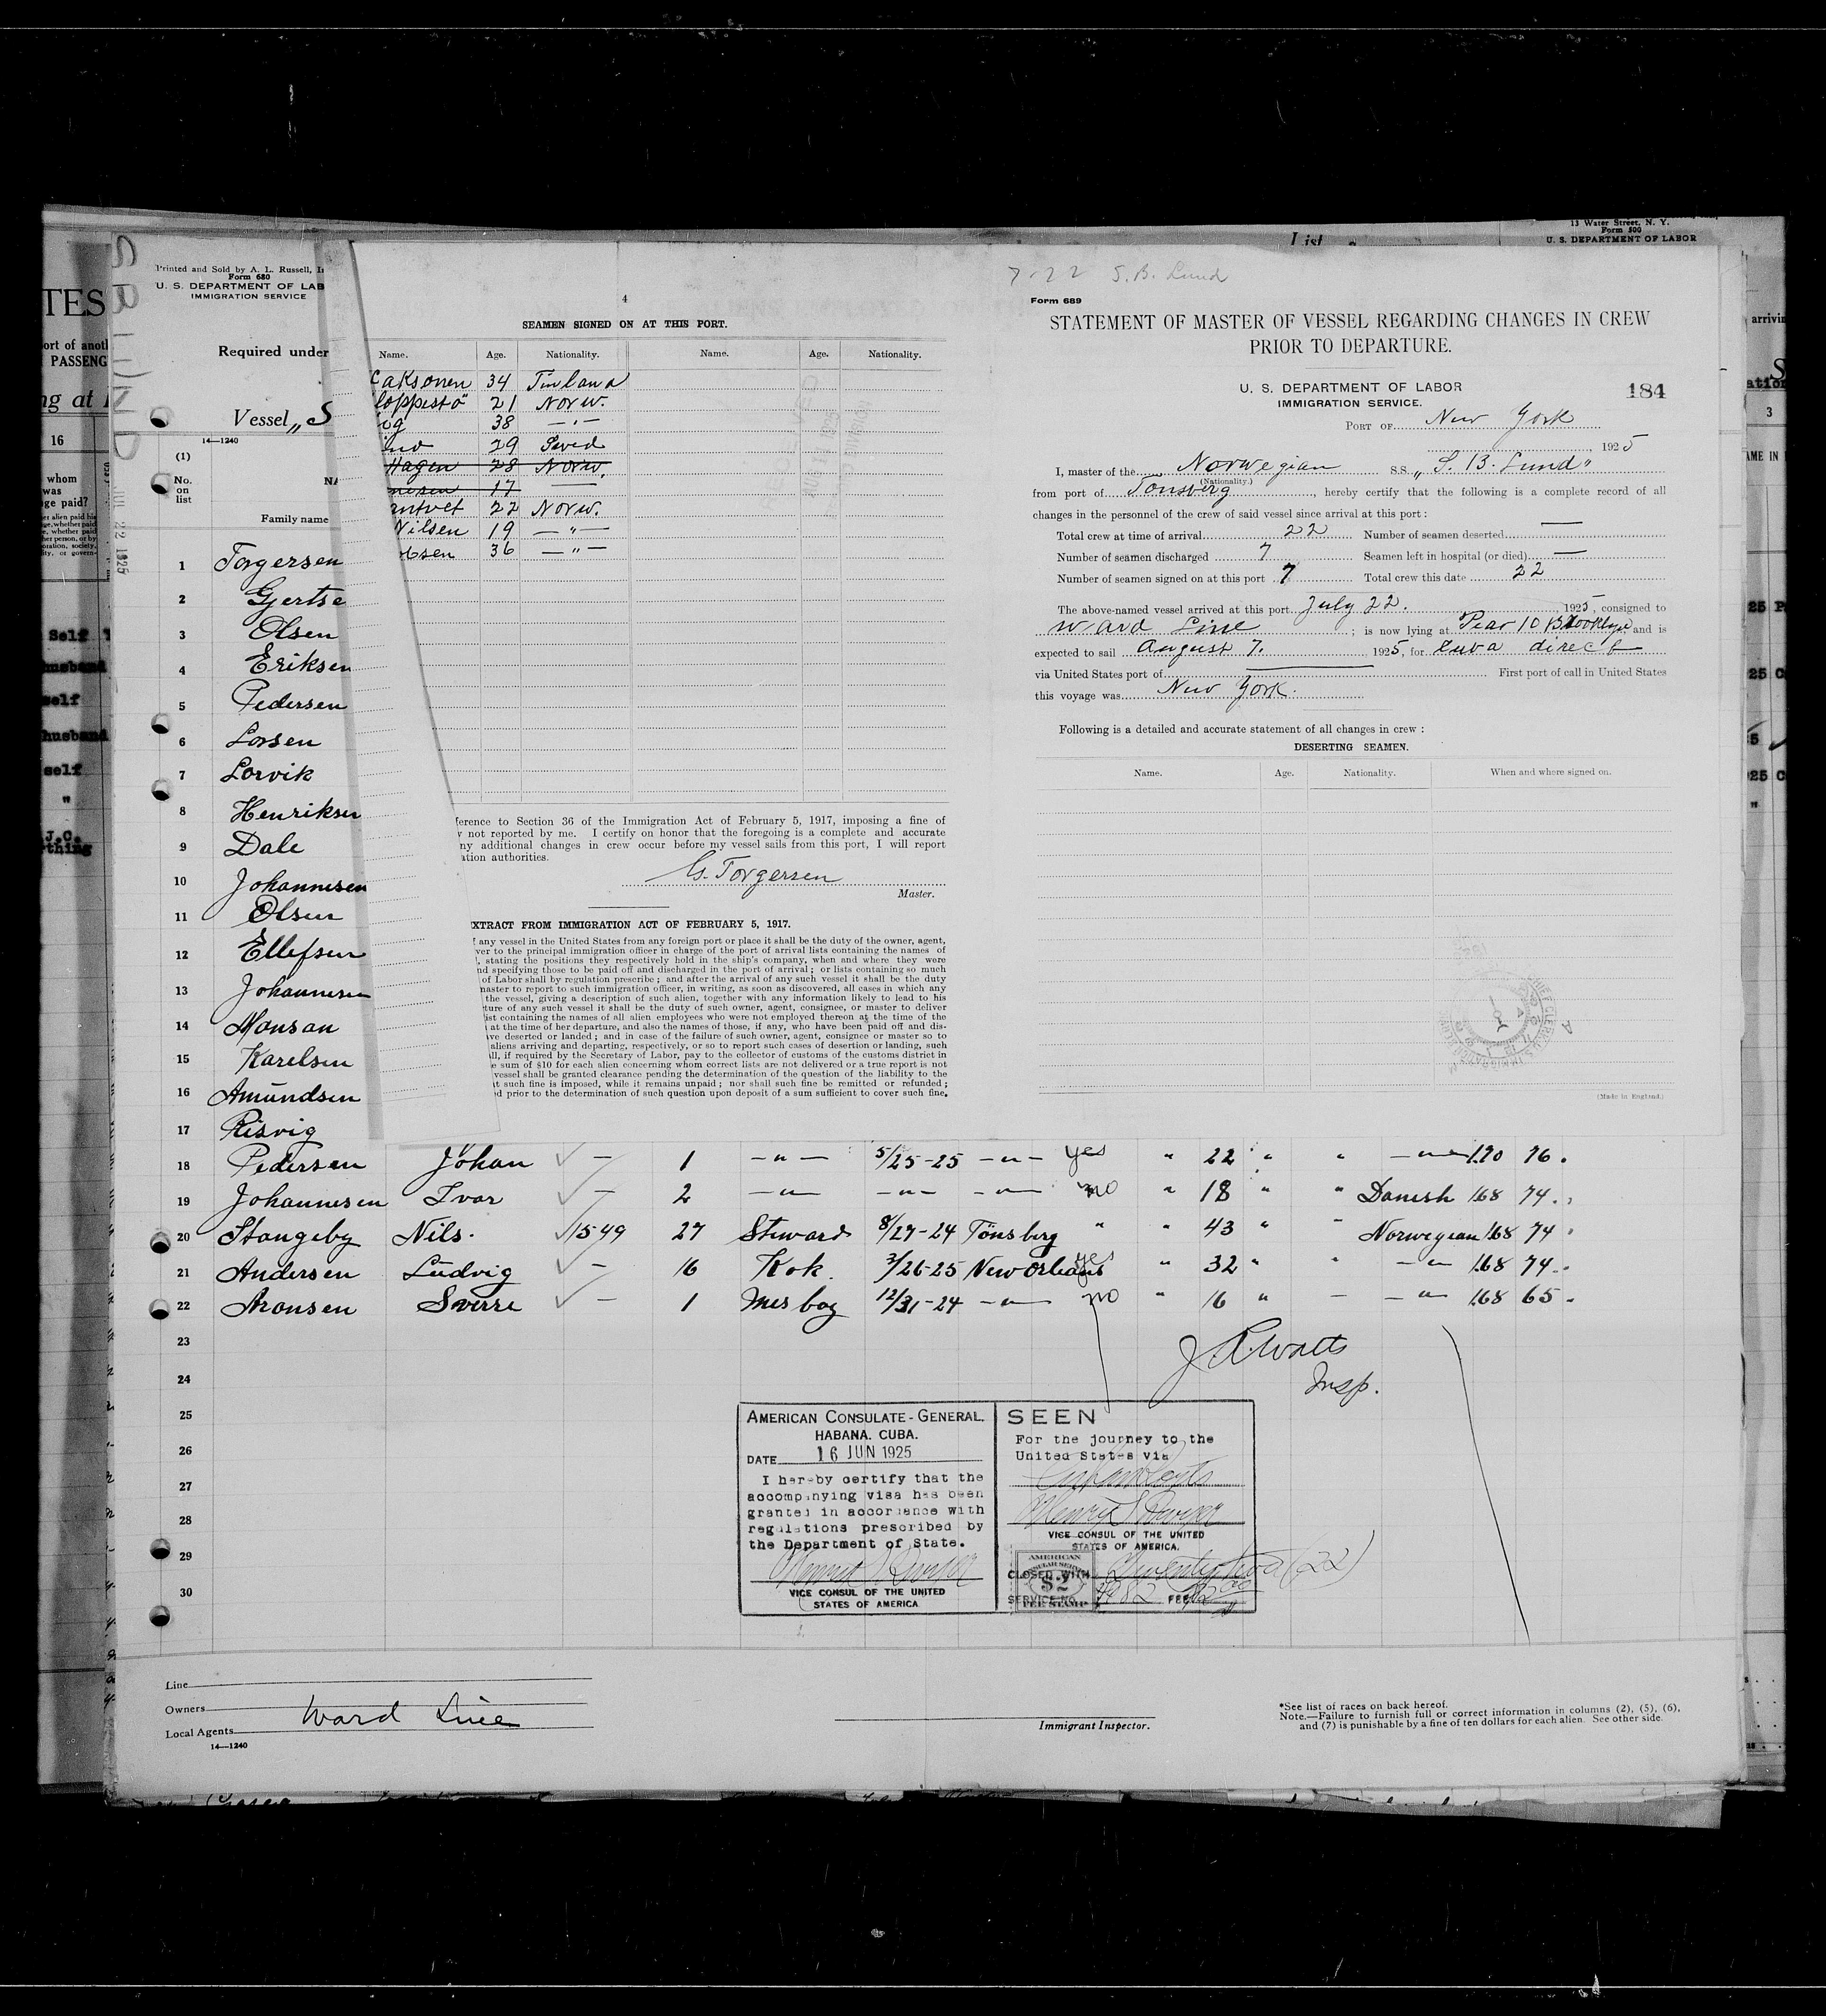 13 Water Street, N. Y.
Form 500
U. S. DEPARTMENT OF LABOR
List
TES
ort of anoth
PASSENG
ng at
16
whom
was
ge paid?
Self
husband
self
husband
self
"
J.C.
thing
S B LUND
JUL 22 1925
Printed and Sold by A. L. Russell, I
Form 680
U. S. DEPARTMENT OF LAB
IMMIGRATION SERVICE
Required under
Vessel „S
14—1240
(1)
No.
on
list
NA
Family name
1 Torgersen
2 Gjertse
3 Olsen
4 Eriksen
5 Pedersen
6 Lorsen
7 Lorvik
8 Henriksen
9 Dale
10 Johannesen
11 Olsen
12 Ellefsen
13 Johannesen
14 Monsan
15 Karelsen
16 Amundsen
17 Risvig
4
SEAMEN SIGNED ON AT THIS PORT.
Name. Age. Nationality. Name. Age. Nationality.
aksonen 34 Finland
loppestö 21 Norw.
ig 38 — " —
ind 29 Swed
Hagen 28 Norw.
nesen 17 —
rntvet 22 Norw.
Nilsen 19 — " —
obsen 36 — " —
ference to Section 36 of the Immigration Act of February 5, 1917, imposing a fine of
not reported by me. I certify on honor that the foregoing is a complete and accurate
ny additional changes in crew occur before my vessel sails from this port, I will report
ation authorities.
G. Torgersen
Master.
XTRACT FROM IMMIGRATION ACT OF FEBRUARY 5, 1917.
f any vessel in the United States from any foreign port or place it shall be the duty of the owner, agent,
ver to the principal immigration officer in charge of the port of arrival lists containing the names of
, stating the positions they respectively hold in the ship's company, when and where they were
nd specifying those to be paid off and discharged in the port of arrival; or lists containing so much
of Labor shall by regulation prescribe; and after the arrival of any such vessel it shall be the duty
master to report to such immigration officer, in writing, as soon as discovered, all cases in which any
the vessel, giving a description of such alien, together with any information likely to lead to his
ture of any such vessel it shall be the duty of such owner, agent, consignee, or master to deliver
ist containing the names of all alien employees who were not employed thereon at the time of the
at the time of her departure, and also the names of those, if any, who have been paid off and dis-
ve deserted or landed; and in case of the failure of such owner, agent, consignee or master so to
aliens arriving and departing, respectively, or so to report such cases of desertion or landing, such
ll, if required by the Secretary of Labor, pay to the collector of customs of the customs district in
e sum of $10 for each alien concerning whom correct lists are not delivered or a true report is not
vessel shall be granted clearance pending the determination of the question of the liability to the
t such fine is imposed, while it remains unpaid; nor shall such fine be remitted or refunded;
d prior to the determination of such question upon deposit of a sum sufficient to cover such fine.
7-22 S. B. Lund
Form 689
STATEMENT OF MASTER OF VESSEL REGARDING CHANGES IN CREW
PRIOR TO DEPARTURE.
U. S. DEPARTMENT OF LABOR
IMMIGRATION SERVICE.
184
PORT OF New York
1925
I, master of the Norwegian S.S. „S. B. Lund"
(Nationality.)
from port of Tonsberg, hereby certify that the following is a complete record of all
changes in the personnel of the crew of said vessel since arrival at this port:
Total crew at time of arrival 22 Number of seamen deserted —
Number of seamen discharged 7 Seamen left in hospital (or died) —
Number of seamen signed on at this port 7 Total crew this date 22
The above-named vessel arrived at this port July 22. , 1925, consigned to
Ward Line ; is now lying at Pear 10 Brooklyn and is
expected to sail August 7. 1925, for Cuba direct
via United States port of — First port of call in United States
this voyage was New York.
Following is a detailed and accurate statement of all changes in crew:
DESERTING SEAMEN.
Name. Age. Nationality. When and where signed on.
(Made in England.)
18 Pedersen Johan — 1 — " — 5/25-25 — " — yes " 22 " " — " — 170 76.
19 Johannesen Ivar — 2 — " — — " — — " — no " 18 " " Danish 168 74.
20 Stangeby Nils. 1549 27 Steward 8/27-24 Tönsberg " " 43 " " Norwegian 168 74
21 Andersen Ludvig — 16 Kok. 3/26-25 New Orleans yes " 32 " " — " — 168 74.
22 Aronsen Sverre — 1 Mes boy 12/31-24 — " — no " 16 " — — " — 168 65.
23
24
25
26
27
28
29
30
J R. Watts
Insp.
AMERICAN CONSULATE-GENERAL.
HABANA. CUBA.
DATE 16 JUN 1925
I hereby certify that the
accompanying visa has been
granted in accordance with
regulations prescribed by
the Department of State.
VICE CONSUL OF THE UNITED
STATES OF AMERICA
SEEN
For the journey to the
United States via
VICE CONSUL OF THE UNITED
STATES OF AMERICA.
CLOSED WITH Twenty two (22)
SERVICE NO. FEE
AMERICAN
CONSULAR SERVICE
$2
FEE STAMP
Line
Owners
Ward Line
Local Agents
14—1240
Immigrant Inspector.
*See list of races on back hereof.
Note.—Failure to furnish full or correct information in columns (2), (5), (6),
and (7) is punishable by a fine of ten dollars for each alien. See other side.
arrivin
S
ation
3
AME IN